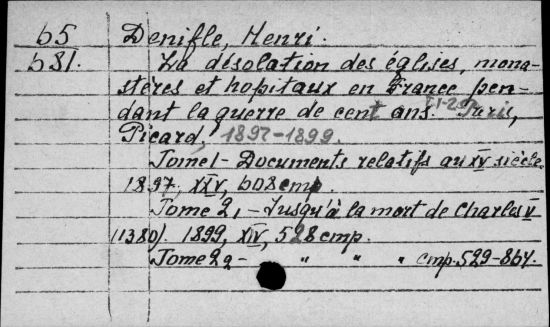 б5 Denifle, Henri.
б31. La désolation des églises, mona-
stères et hopitaux en France pen-
dant la guerre de cent ans. T.1-2. Paris,
Picard, 1897-1899.
Tome 1 - Documents relatifs au XV siècle.
1897, XXIV, 608 cmp.
Tome 21 - Jusqu'à la mort de Charles V
(1380). 1899, XIV, 528 cmp.
Tome 22 - " " " cmp. 529-864.